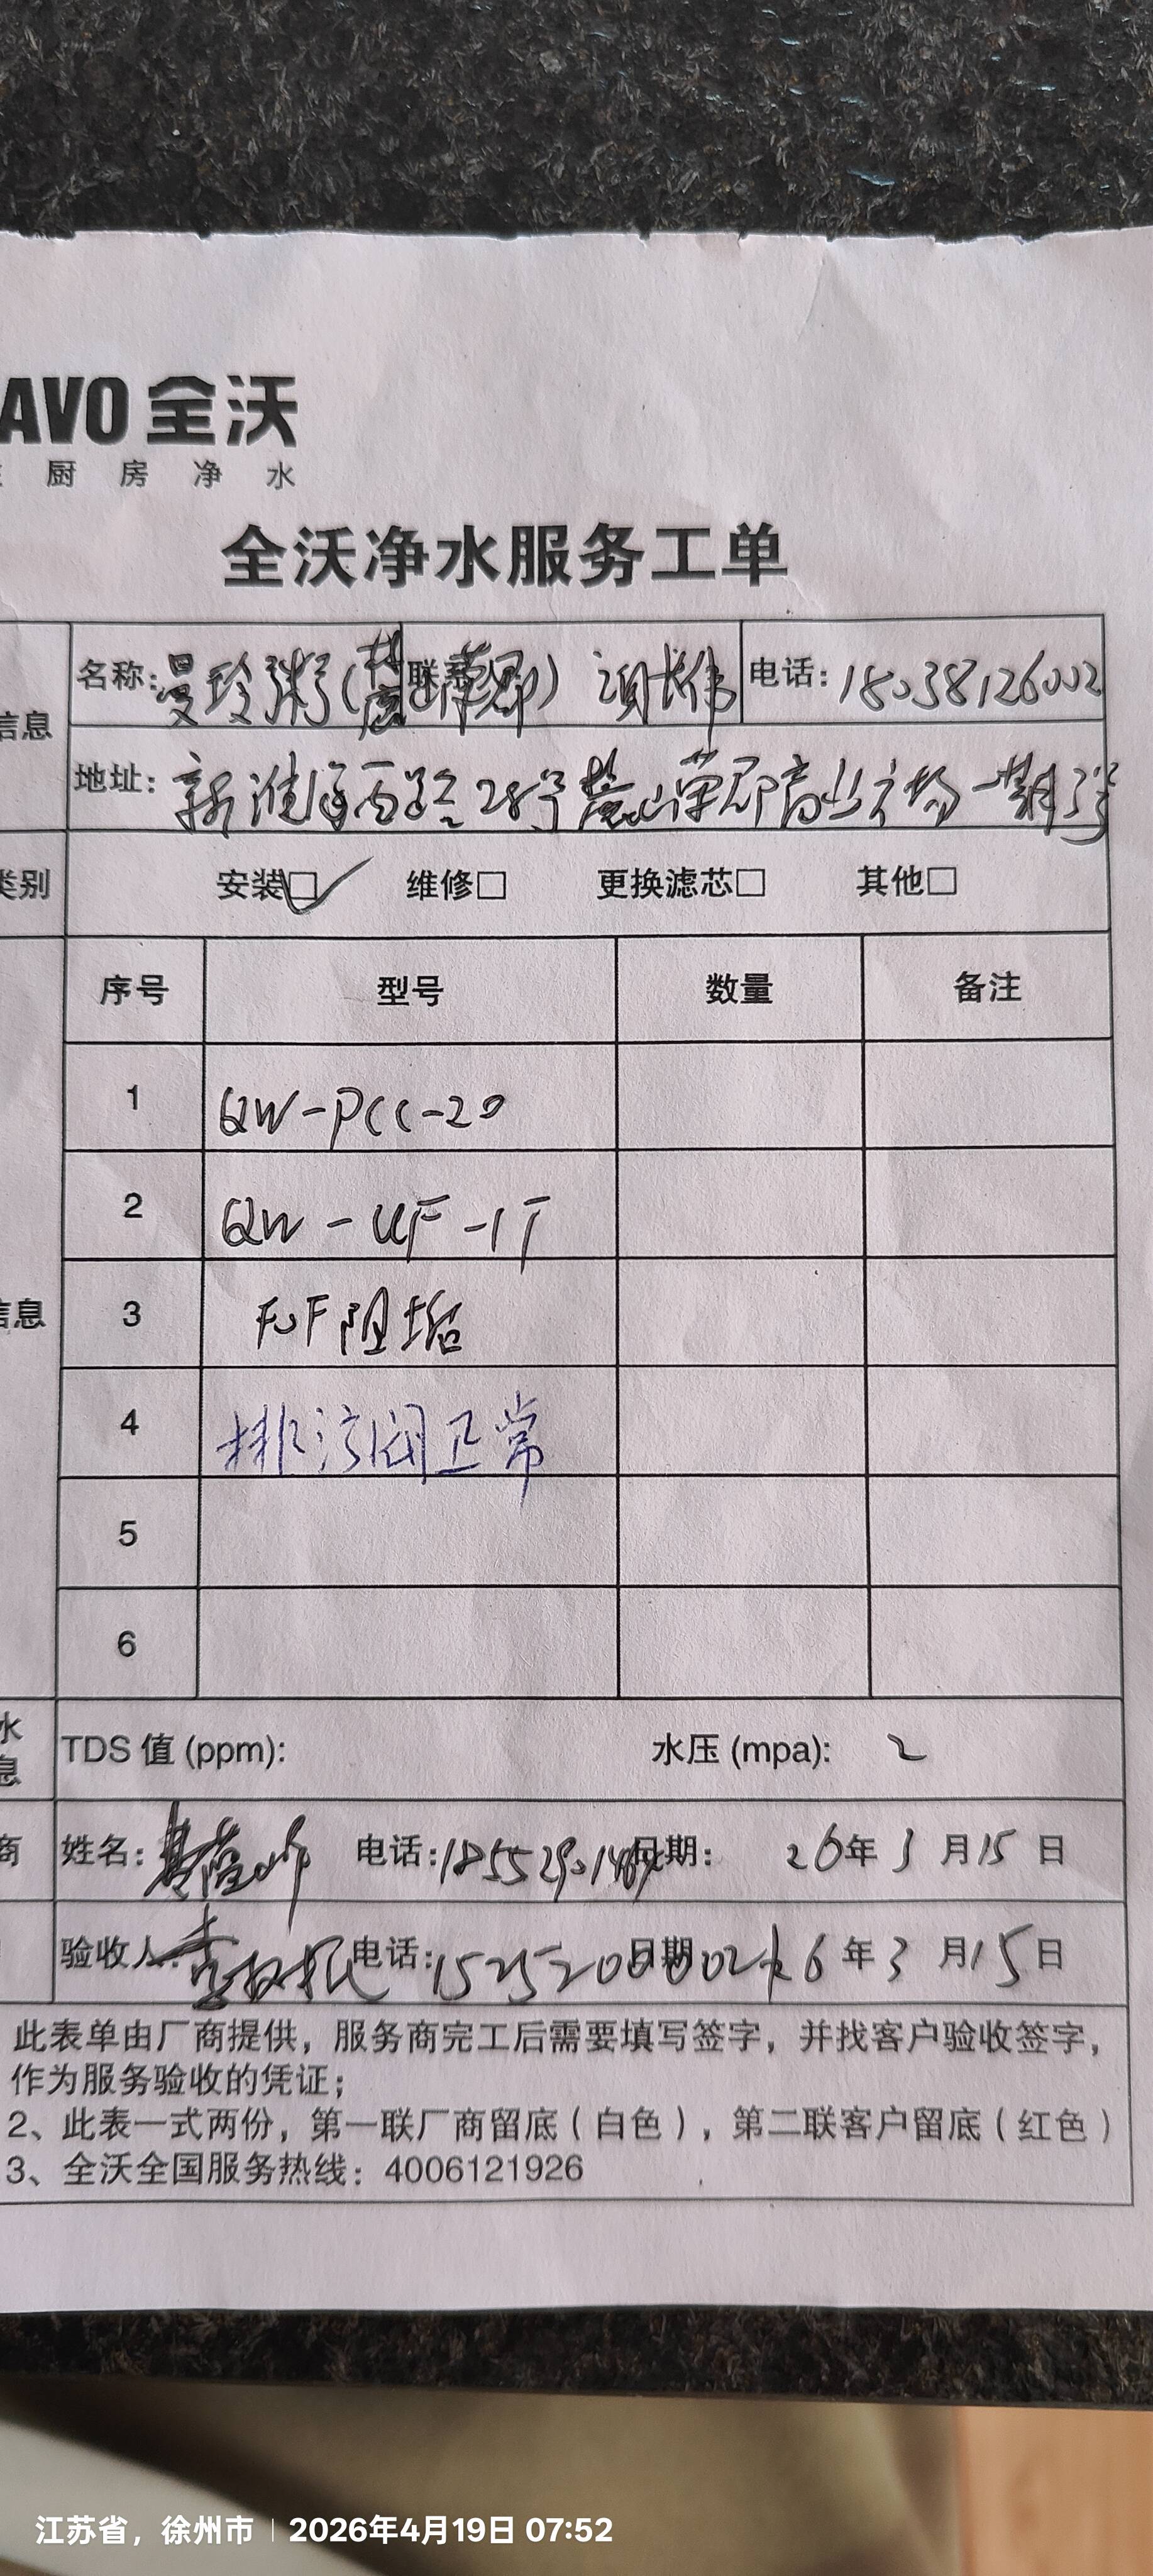 AVO 全沃
厨房净水
全沃净水服务工单
信息
名称：曼玲粥 电话：15038126002
地址：新淮海西路28号 商业广场一期
类别 安装☑ 维修□ 更换滤芯□ 其他□
序号 型号 数量 备注
1 QW-PCC-20
2 QW-UF-1T
信息 3 FOF阻垢
4 排污阀正常
5
6
水
息
TDS 值 (ppm): 水压 (mpa): 2
商 姓名： 电话: 日期： 26年3月15日
验收人: 电话： 日期 26年3月15日
此表单由厂商提供，服务商完工后需要填写签字，并找客户验收签字，
作为服务验收的凭证；
2、此表一式两份，第一联厂商留底（白色），第二联客户留底（红色）
3、全沃全国服务热线：4006121926
江苏省，徐州市 | 2026年4月19日 07:52